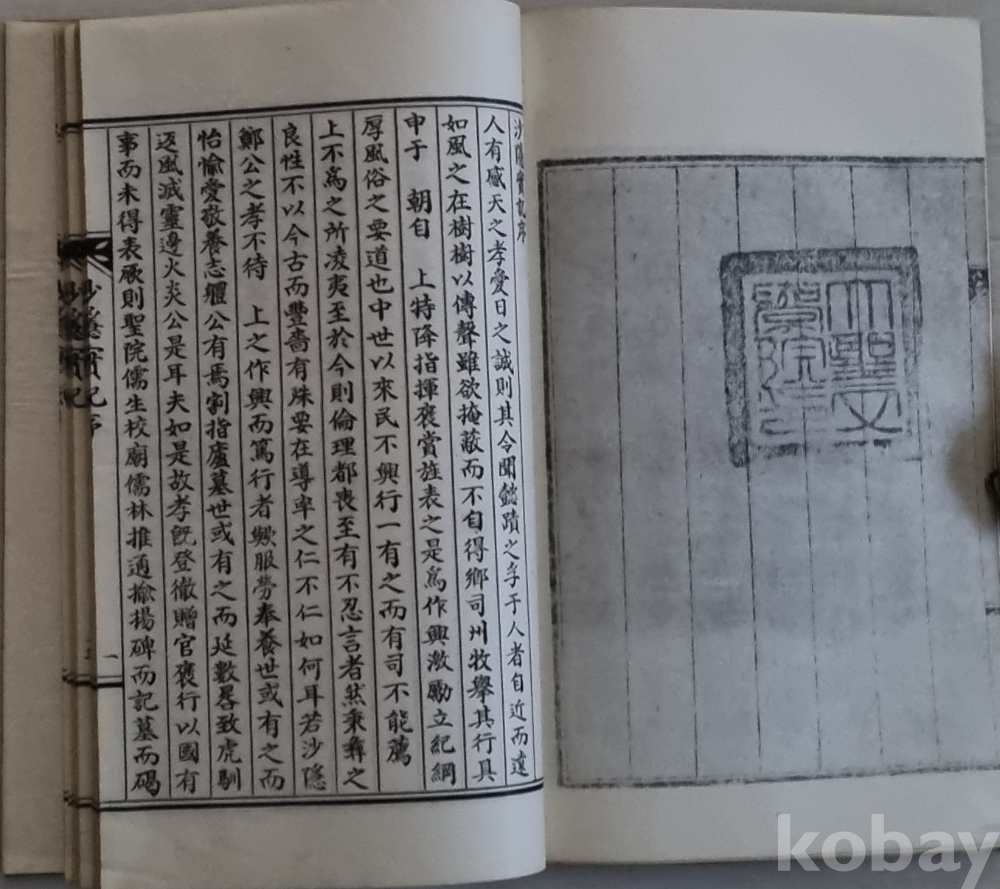 大聖文
沙隱實記序
人有感天之孝愛日之誠則其令聞懿蹟之孚于人者自近而遠
如風之在樹樹以傳聲雖欲掩蔽而不自得鄉司州牧舉其行具
申于 朝自 上特降指揮褒賞旌表之是爲作興激勵立紀綱
厚風俗之要道也中世以來民不興行一有之而有司不能薦
上不爲之所凌夷至於今則倫理都喪至有不忍言者然秉彝之
良性不以今古而豐嗇有殊要在導率之仁不仁如何耳若沙隱
鄭公之孝不待 上之作興而篤行者歟服勞奉養世或有之而
怡愉愛敬養志軆公有焉割指廬墓世或有之而延數晷致虎馴
返風滅靈邊火炎公是耳夫如是故孝旣登徹贈官褒行以國有
事而未得表厥則聖院儒生校廟儒林推通揄揚碑而記墓而碣
沙隱實記序
一
kobay